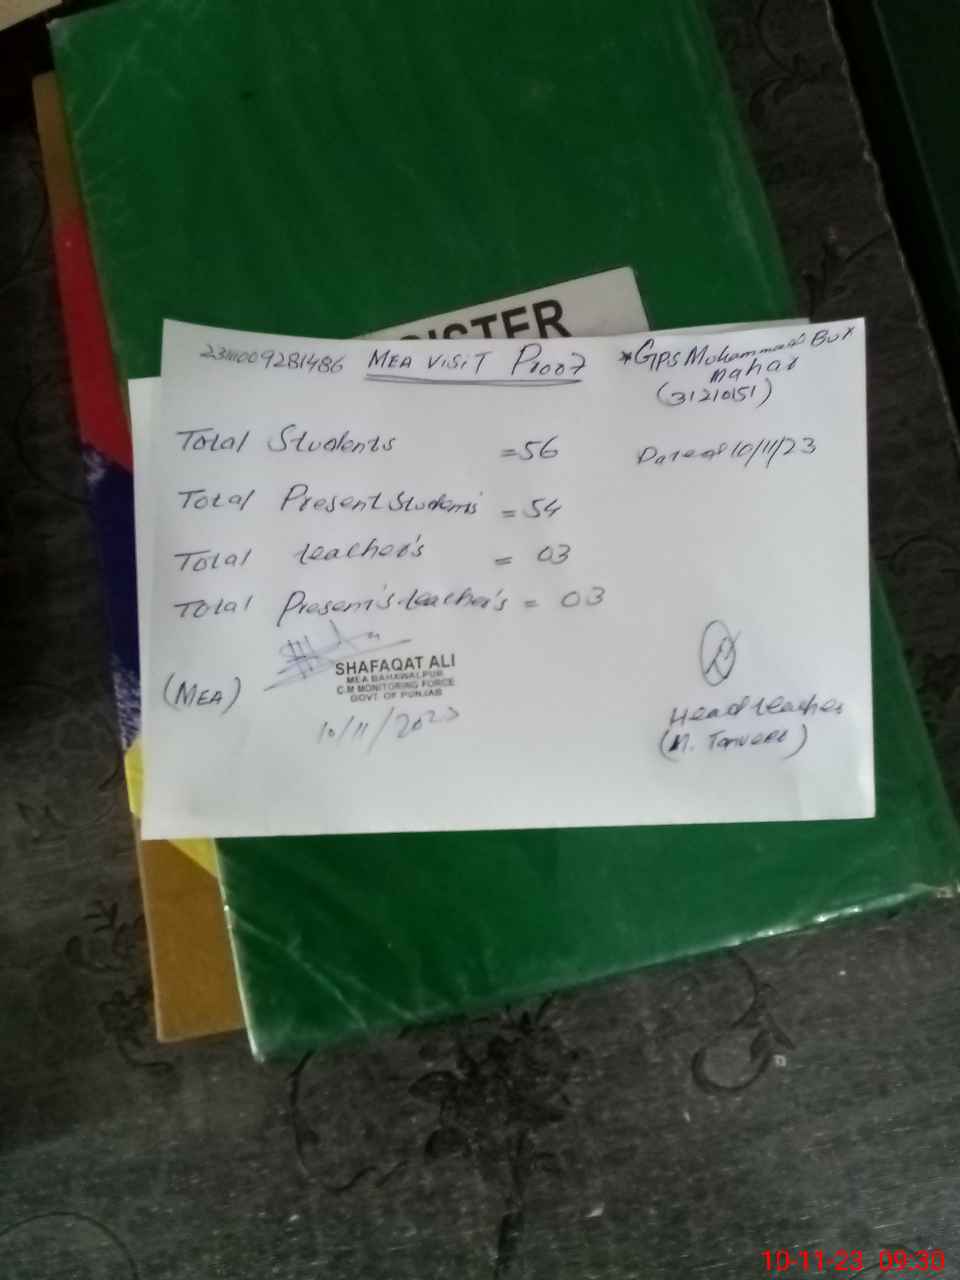 GISTER
23111009281486 MEA VISIT Proof *GPS Mohammad Bux
Mahar
(31210151)
Total Students =56 Date of 10/11/23
Total Present Students = 54
Total teacher's = 03
Total Present's teacher's = 03
SHAFAQAT ALI
MEA BAHAWALPUR
C.M MONITORING FORCE
GOVT. OF PUNJAB
(MEA)
10/11/2023
Headteacher
(M. Tanveer)
10-11-23 09:30